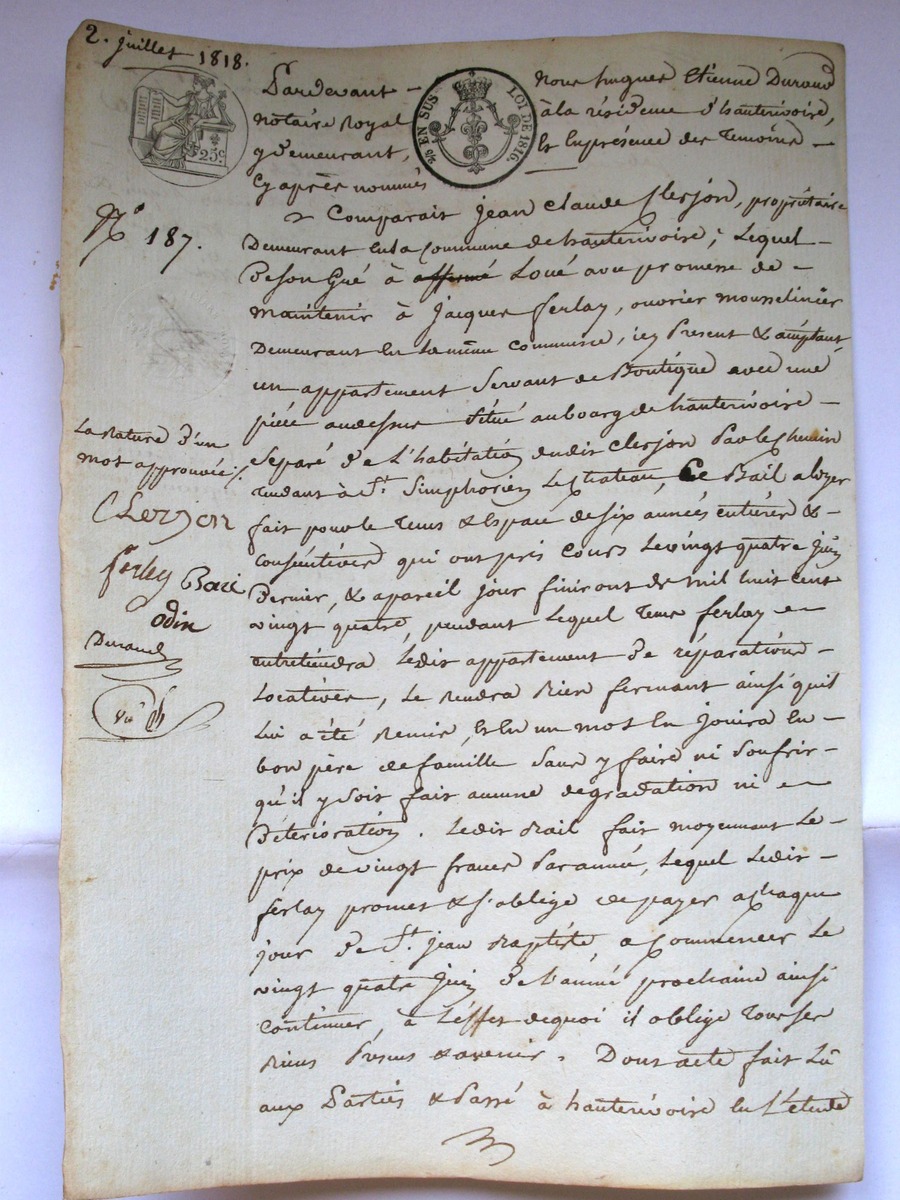 2. juillet 1818.
25c
EN SUS
LOI DE 1816.
Pardevant - Nous Etienne Durand
notaire Royal à la résidence d'hauterivoire,
y demeurant, Et En présence des Temoins -
Cy après nommés
Comparait jean Claude Clerjon, propriétaire
Demeurant en la Commune de hauterivoire; Lequel -
De son Gré à affermé Loué avec promesse de -
maintenir à jacques ferlay, ouvrier mousselinier
Demeurant En la même Commune, icy Present & acceptant,
un appartement Servant de Boutique avec une
pièce audessus Situé au bourg de hauterivoire -
Separé de L'habitation dudit Clerjon Par le Chemin
Tendant à St. Simphorien Le Chateau, Ce Bail a loyer
fait pour le Tems & Espace de six années entières &
Consécutives qui ont pris Cours Le vingt quatre juin
Dernier, & a pareil jour finiront de mil huit cent
vingt quatre, pendant Lequel Tems ferlay
entretiendra Ledit appartement de réparations -
Locatives, Le Rendra Bien fermant ainsi quil
Lui a été Remis, Et En un mot En jouira En -
bon père de famille Sans y faire ni Soufrir -
qu'il y Soit fait aucune degradation ni
Déterioration. Ledit Bail fait moyennant Le
prix de vingt francs Par année, Lequel Ledit -
ferlay promet & s'oblige de payer a Chaque
jour de St. jean Baptiste, a Commencer Le
vingt quatre juin de L'année prochaine ainsi
Continuer, à L'éffet de quoi il oblige Tous Ses
Biens Presens & avenir. Dont acte fait Lû
aux Parties & Passé à hauterivoire En L'etude
No 187.
La Rature d'un
mot approuvée ./.
Clerjon
ferley
odin
Durand